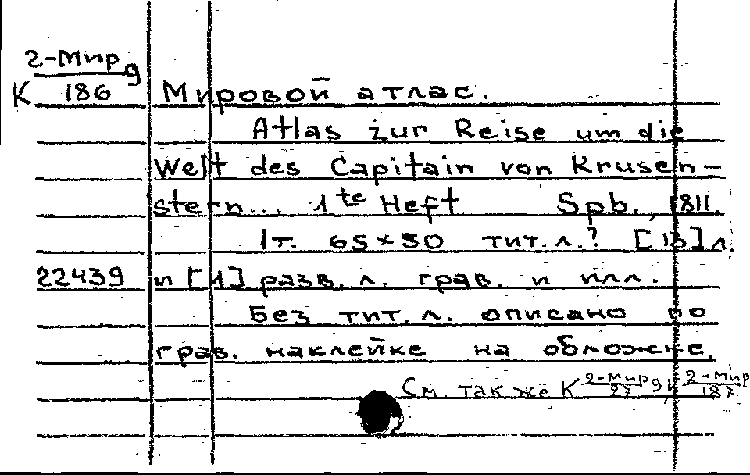 2-Мир
К 186 g
Мировой атлас.
Atlas zur Reise um die
Welt des Capitain von Krusen-
stern... 1te Heft Spb., 1811.
1т. 65×50 тит.л.? [13] л.
22439 и [1] разв. л. грав. и илл.
Без тит. л. описано по
грав. наклейке на обложке.
См. также К 2-Мир/27 g, К 2-Мир/187